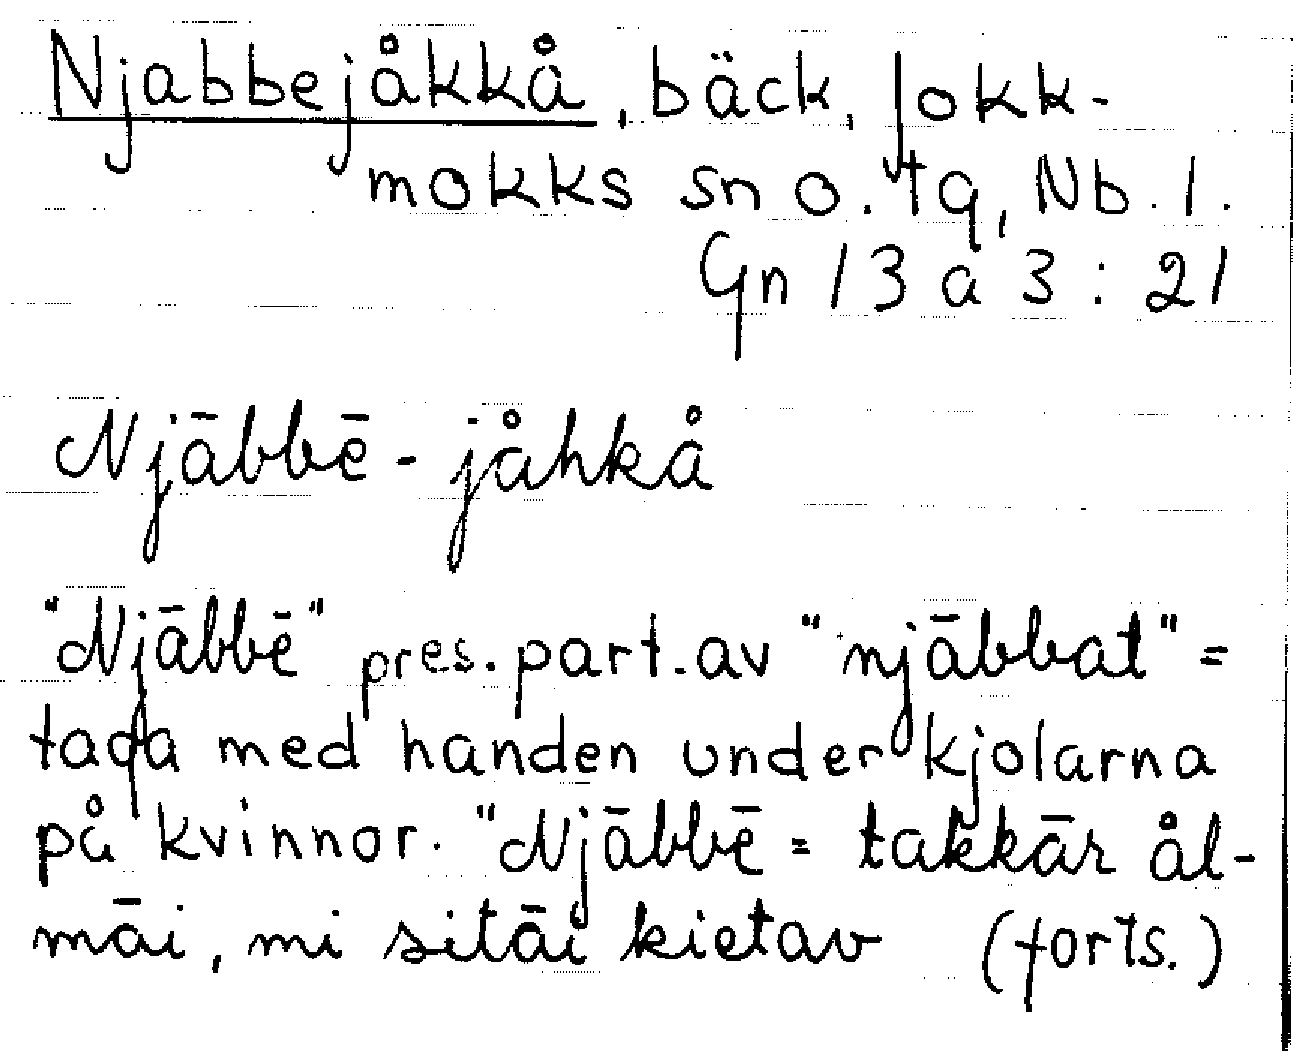 Njabbejåkkå, bäck, Jokk-
mokks sn o. tg, Nb. l.
Gn 13 a 3 : 21
Njābbē - jåhkå
"Njābbē" pres. part. av "njābbat" =
taga med handen under kjolarna
på kvinnor. "Njābbē = takkār ål-
māi, mi sitāi kietav (forts.)